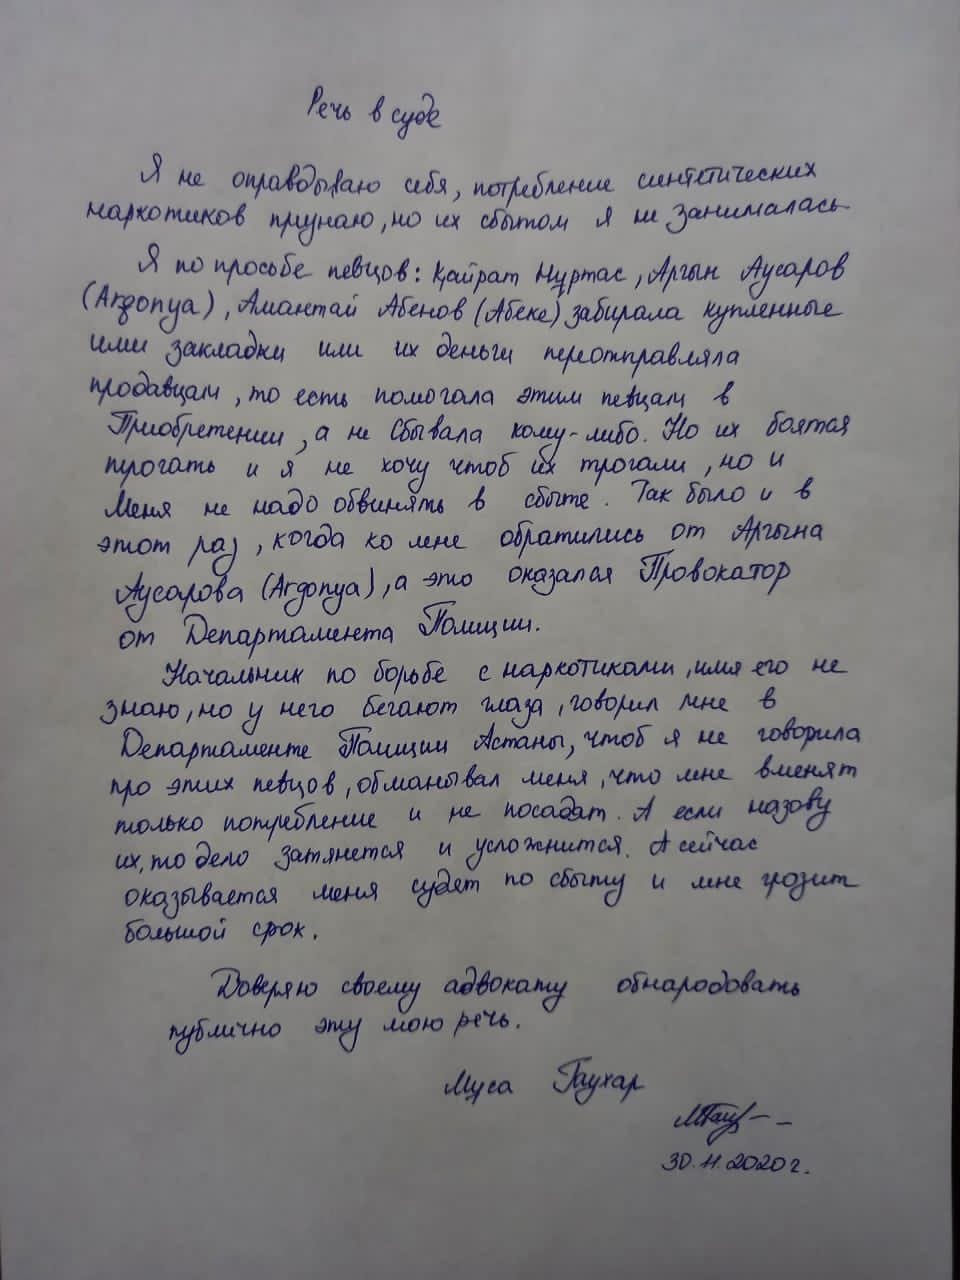 Речь в суде
Я не оправдываю себя, потребление синтетических
наркотиков признаю, но их сбытом я не занималась
Я по просьбе певцов: Қайрат Нұртас, Аргын Аусаров
(Argonya), Амантай Абенов (Абеке) забирала купленные
ими закладки или их деньги переотправляла
продавцам, то есть помогала этим певцам в
Приобретении, а не сбывала кому-либо. Но их боятся
трогать и я не хочу чтоб их трогали, но и
меня не надо обвинять в сбыте. Так было и в
этот раз, когда ко мне обратились от Аргына
Аусарова (Argonya), а это оказался Провокатор
от Департамента Полиции.
Начальник по борьбе с наркотиками, имя его не
знаю, но у него бегают глаза, говорил мне в
Департаменте Полиции Астаны, чтоб я не говорила
про этих певцов, обманывал меня, что мне вменят
только потребление и не посадят. А если назову
их, то дело затянется и усложнится. А сейчас
оказывается меня судят по сбыту и мне грозит
большой срок.
Доверяю своему адвокату обнародовать
публично эту мою речь.
Муса Гаухар
МГау
30.11.2020г.